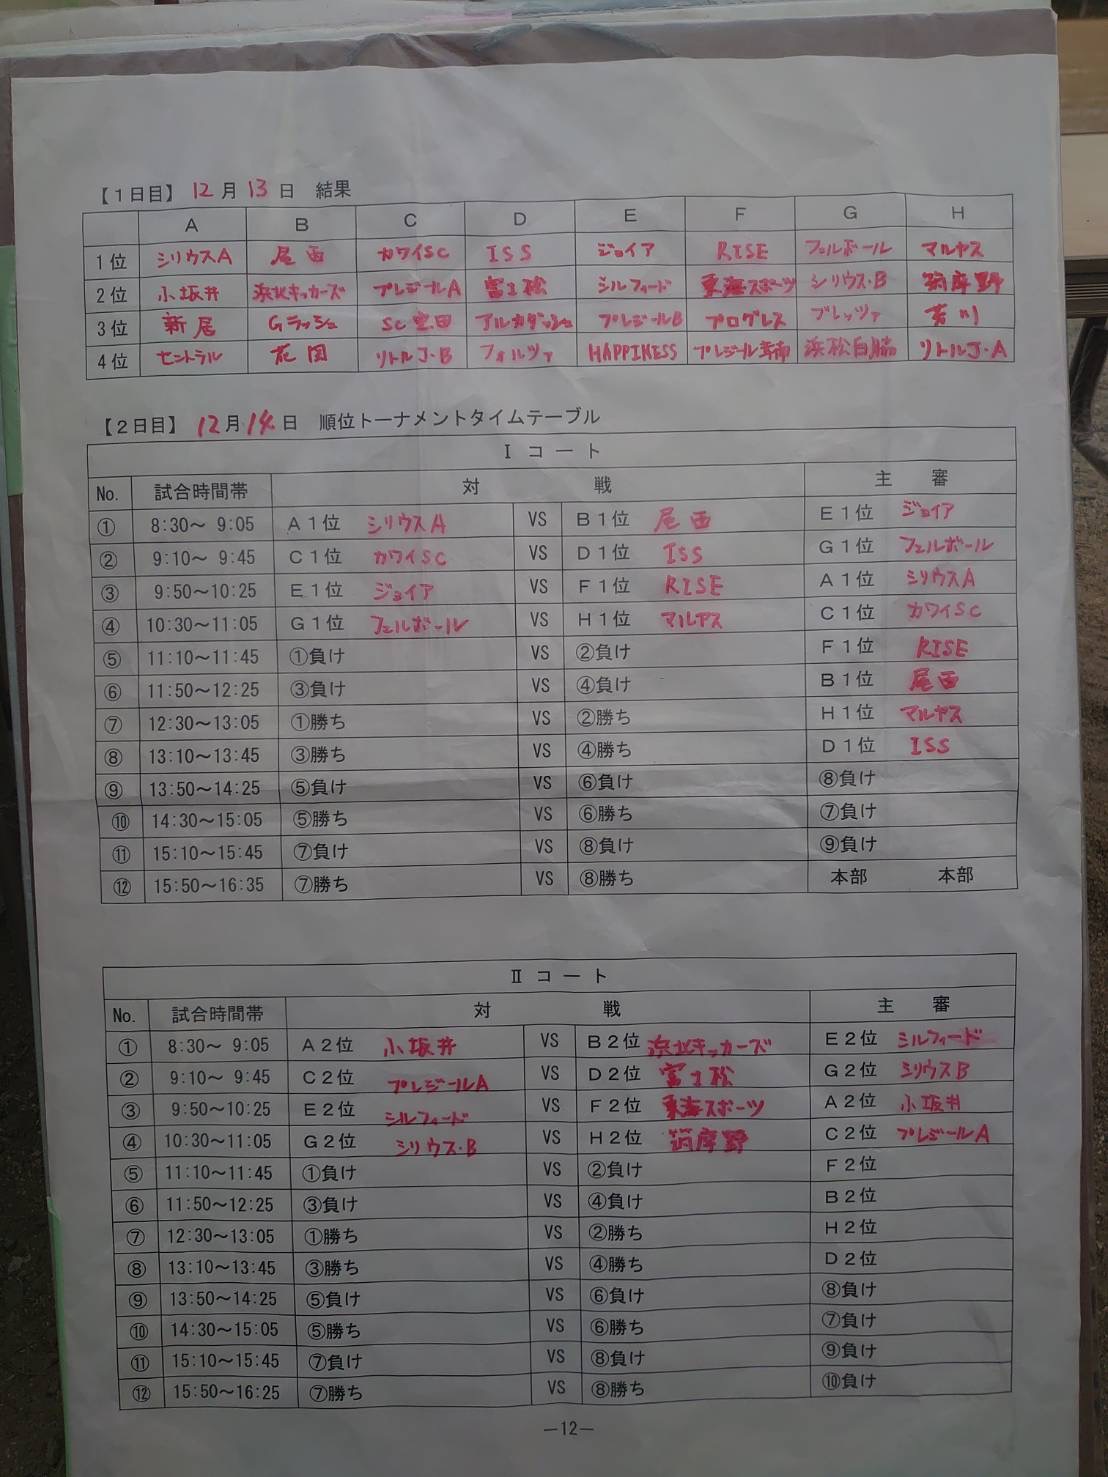 【1日目】 12月13日 結果
A B C D E F G H
1位 シリウスA 尾西 カワイSC ISS ジョイア RISE フェルボール マルヤス
2位 小坂井 浜北キッカーズ プレジールA 富士松 シルフィード 東海スポーツ シリウス・B 筑摩野
3位 新居 Gラッシュ SC豊田 アルカダッシュ プレジールB プログレス ブレッツァ 芳川
4位 セントラル 花園 リトルJ・B フォルツァ HAPPINESS プレジール芳南 浜松白脇 リトルJ・A
【2日目】 12月14日 順位トーナメントタイムテーブル
Ⅰコート
No. 試合時間帯 対 戦 主 審
① 8:30～ 9:05 A1位 シリウスA VS B1位 尾西 E1位 ジョイア
② 9:10～ 9:45 C1位 カワイSC VS D1位 ISS G1位 フェルボール
③ 9:50～10:25 E1位 ジョイア VS F1位 RISE A1位 シリウスA
④ 10:30～11:05 G1位 フェルボール VS H1位 マルヤス C1位 カワイSC
⑤ 11:10～11:45 ①負け VS ②負け F1位 RISE
⑥ 11:50～12:25 ③負け VS ④負け B1位 尾西
⑦ 12:30～13:05 ①勝ち VS ②勝ち H1位 マルヤス
⑧ 13:10～13:45 ③勝ち VS ④勝ち D1位 ISS
⑨ 13:50～14:25 ⑤負け VS ⑥負け ⑧負け
⑩ 14:30～15:05 ⑤勝ち VS ⑥勝ち ⑦負け
⑪ 15:10～15:45 ⑦負け VS ⑧負け ⑨負け
⑫ 15:50～16:35 ⑦勝ち VS ⑧勝ち 本部 本部
Ⅱコート
No. 試合時間帯 対 戦 主 審
① 8:30～ 9:05 A2位 小坂井 VS B2位 浜北キッカーズ E2位 シルフィード
② 9:10～ 9:45 C2位 プレジールA VS D2位 富士松 G2位 シリウスB
③ 9:50～10:25 E2位 シルフィード VS F2位 東海スポーツ A2位 小坂井
④ 10:30～11:05 G2位 シリウス・B VS H2位 筑摩野 C2位 プレジールA
⑤ 11:10～11:45 ①負け VS ②負け F2位
⑥ 11:50～12:25 ③負け VS ④負け B2位
⑦ 12:30～13:05 ①勝ち VS ②勝ち H2位
⑧ 13:10～13:45 ③勝ち VS ④勝ち D2位
⑨ 13:50～14:25 ⑤負け VS ⑥負け ⑧負け
⑩ 14:30～15:05 ⑤勝ち VS ⑥勝ち ⑦負け
⑪ 15:10～15:45 ⑦負け VS ⑧負け ⑨負け
⑫ 15:50～16:25 ⑦勝ち VS ⑧勝ち ⑩負け
－12－